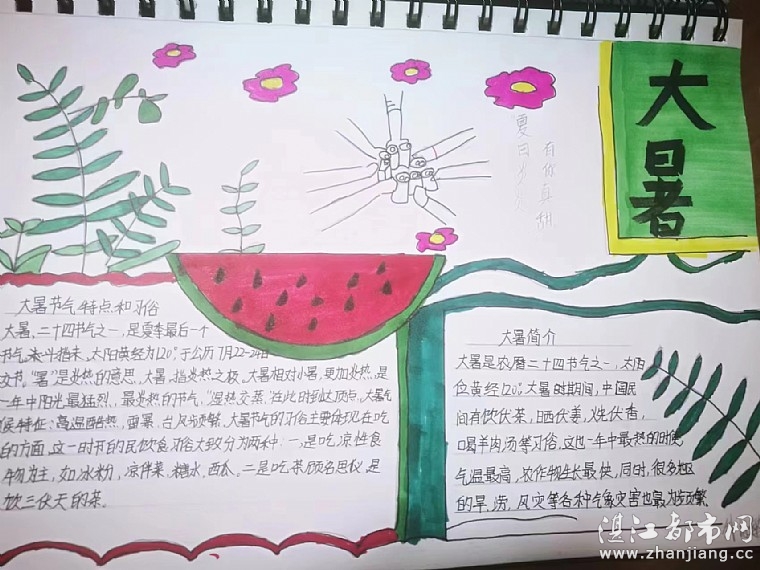 大暑
夏日
有你真甜
大暑节气特点和习俗
大暑、二十四节气之一，是夏季最后一个
节气。斗指未，太阳黄经为120°，于公历7月22-24日
交节。"暑"是炎热的意思，大暑，指炎热之极。大暑相对小暑，更加炎热，是
一年中阳光最猛烈、最炎热的节气，"湿热交蒸"在此时到达顶点。大暑气
候特征：高温酷热，雷暴、台风频繁。大暑节气的习俗主要体现在吃
的方面，这一时节的民饮食习俗大致分为两种：一、是吃凉性食
物为主，如冰粉、凉拌菜、糖水、西瓜。二是吃茶顾名思仪，是
饮三伏天的茶。
大暑简介
大暑是农历二十四节气之一，太阳
位黄经120°。大暑时期间，中国民
间有饮伏茶，晒伏姜，烧伏香，
喝羊肉汤等习俗，这也一年中最热的时候
气温最高，农作物生长最快，同时，很多地区
的旱、涝、风灾等各种气象灾害也最为频繁
湛江都市网
www.zhanjiang.cc